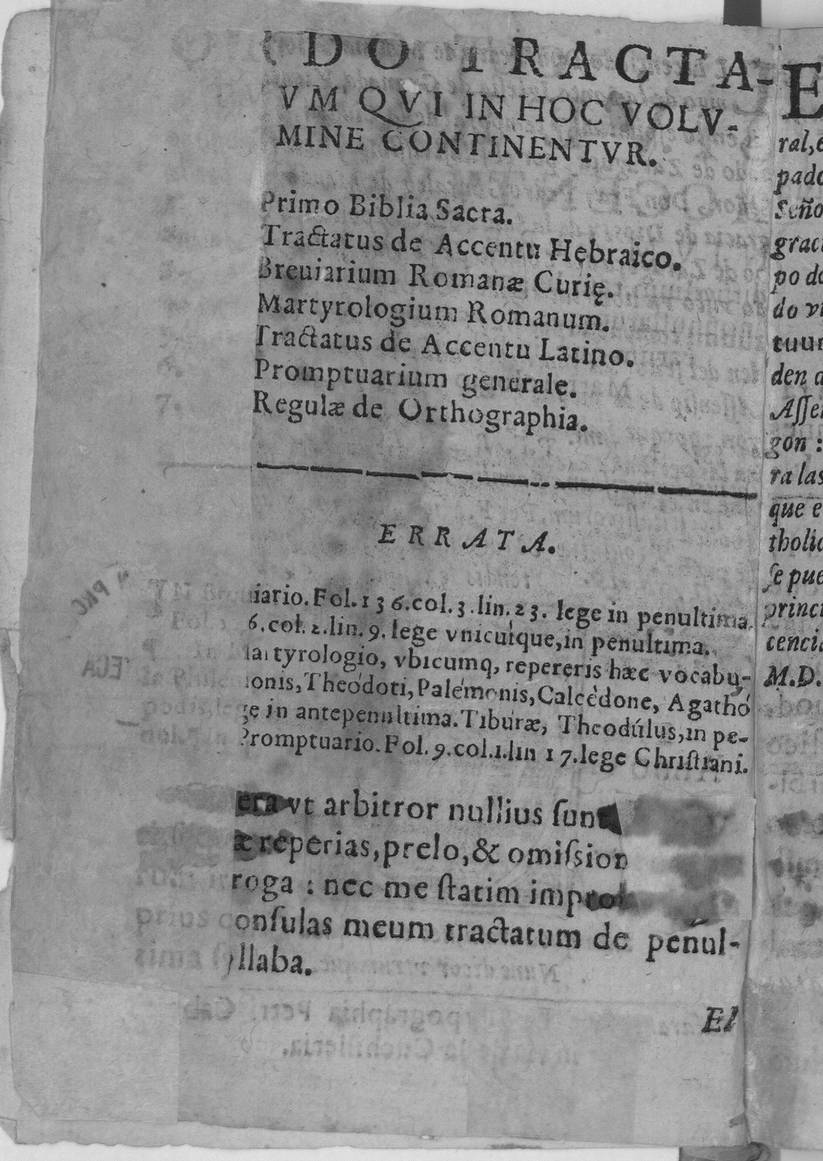 DO TRACTA-
VM QVI IN HOC VOLV-
MINE CONTINENTVR.
Primo Biblia Sacra.
Tractatus de Accentu Hebraico.
Breuiarium Romanæ Curię.
Martyrologium Romanum.
Tractatus de Accentu Latino.
6. Promptuarium generale.
7. Regulæ de Orthographia.
ERRATA.
iario. Fol. 136. col. 3. lin. 23. lege in penultima.
6. col. 2. lin. 9. lege vnicuique, in penultima.
Martyrologio, vbicumq, repereris hæc vocabu-
onis, Theódoti, Palémonis, Calcédone, Agathó
ge in antepenultima. Tiburæ, Theodúlus, in pe-
Promptuario. Fol. 9. col. 1. lin 17. lege Christiani.
era vt arbitror nullius sunt
æ reperias, prelo, & omission
roga : nec me statim improb
onsulas meum tractatum de penul-
yllaba.
El
E
ral, é
pado
Seño
graci
po de
do vi
tuur
den a
Assen
gon :
ra las
que e
tholic
se pue
princi
cencia
M.D.